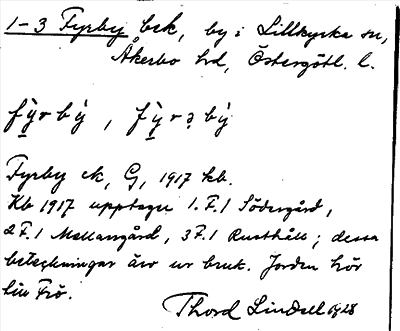 1-3 Fyrby bek, by i Lillkyrka sn,
Åkerbo hd, Östergötl. l.
fy̌rbẏ, fy̌rəbẏ
Fyrby ek, G, 1917 kb.
Kb 1917 upptager 1. F. 1 Södergård,
2 F. 1 Mellangård, 3 F. 1 Rusthåll; dessa
beteckningar äro ur bruk. Jorden hör
till Frö.
Thord Lindell 1928